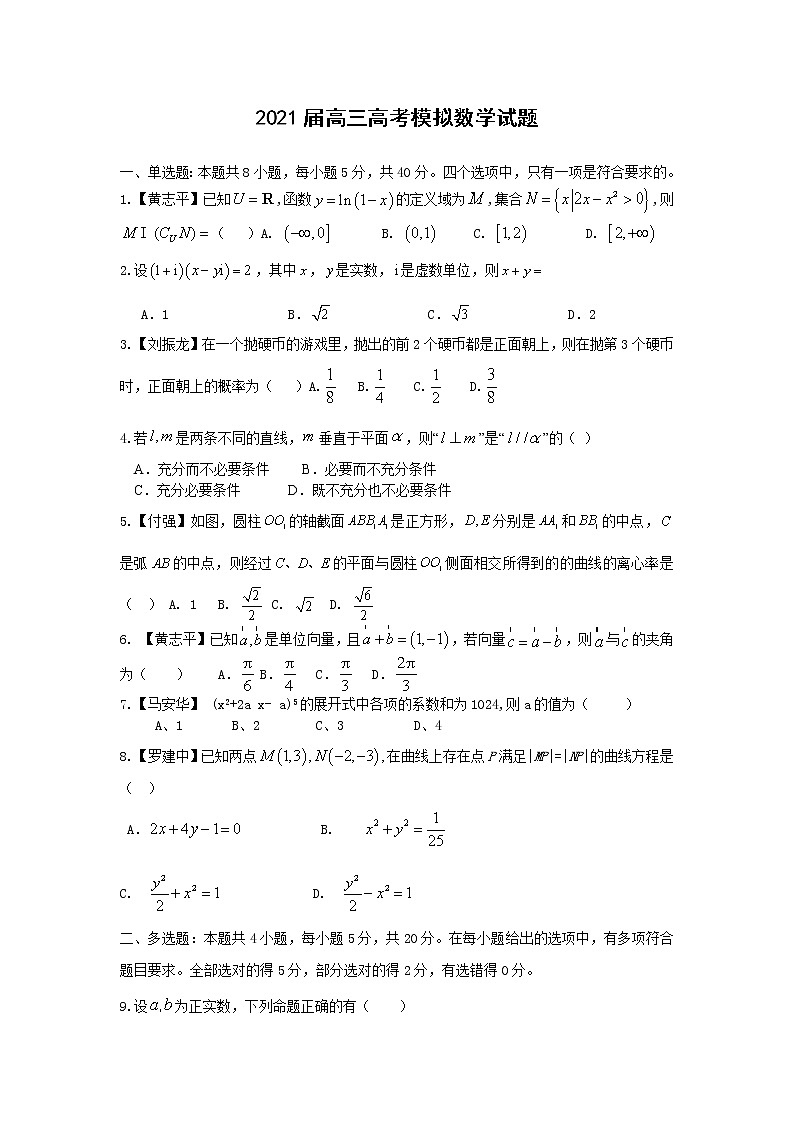 2021届高三高考模拟数学试题
一、单选题:本题共8小题,每小题5分,共40分。四个选项中,只有一项是符合要求的。
1.【黄志平】已知U=R,函数y=ln(1−x)的定义域为M,集合N={x|2x−x²>0},则
M I (C_U N)=( )A. (−∞,0] B. (0,1) C. [1,2) D. [2,+∞)
2.设(1+i)(x−yi)=2,其中x,y是实数,i是虚数单位,则x+y=
A.1 B.√2 C.√3 D.2
3.【刘振龙】在一个抛硬币的游戏里,抛出的前2个硬币都是正面朝上,则在抛第3个硬币
时,正面朝上的概率为( )A.1/8 B.1/4 C.1/2 D.3/8
4.若l,m是两条不同的直线,m垂直于平面α,则“l⊥m”是“l//α”的( )
A.充分而不必要条件 B.必要而不充分条件
C.充分必要条件 D.既不充分也不必要条件
5.【付强】如图,圆柱OO₁的轴截面ABB₁A₁是正方形,D,E分别是AA₁和BB₁的中点,C
是弧AB的中点,则经过C、D、E的平面与圆柱OO₁侧面相交所得到的的曲线的离心率是
( ) A. 1 B. √2/2 C. √2 D. √6/2
6. 【黄志平】已知a,b是单位向量,且a+b=(1,−1),若向量c=a−b,则a与c的夹角
为( ) A.π/6 B.π/4 C.π/3 D.2π/3
7.【马安华】 (x²+2a x− a)⁵的展开式中各项的系数和为1024,则a的值为( )
A、1 B、2 C、3 D、4
8.【罗建中】已知两点M(1,3),N(−2,−3),在曲线上存在点P满足|MP|=|NP|的曲线方程是
( )
A.2x+4y−1=0 B. x²+y²=1/25
C. y²/2+x²=1 D. y²/2−x²=1
二、多选题:本题共4小题,每小题5分,共20分。在每小题给出的选项中,有多项符合
题目要求。全部选对的得5分,部分选对的得2分,有选错得0分。
9.设a,b为正实数,下列命题正确的有( )